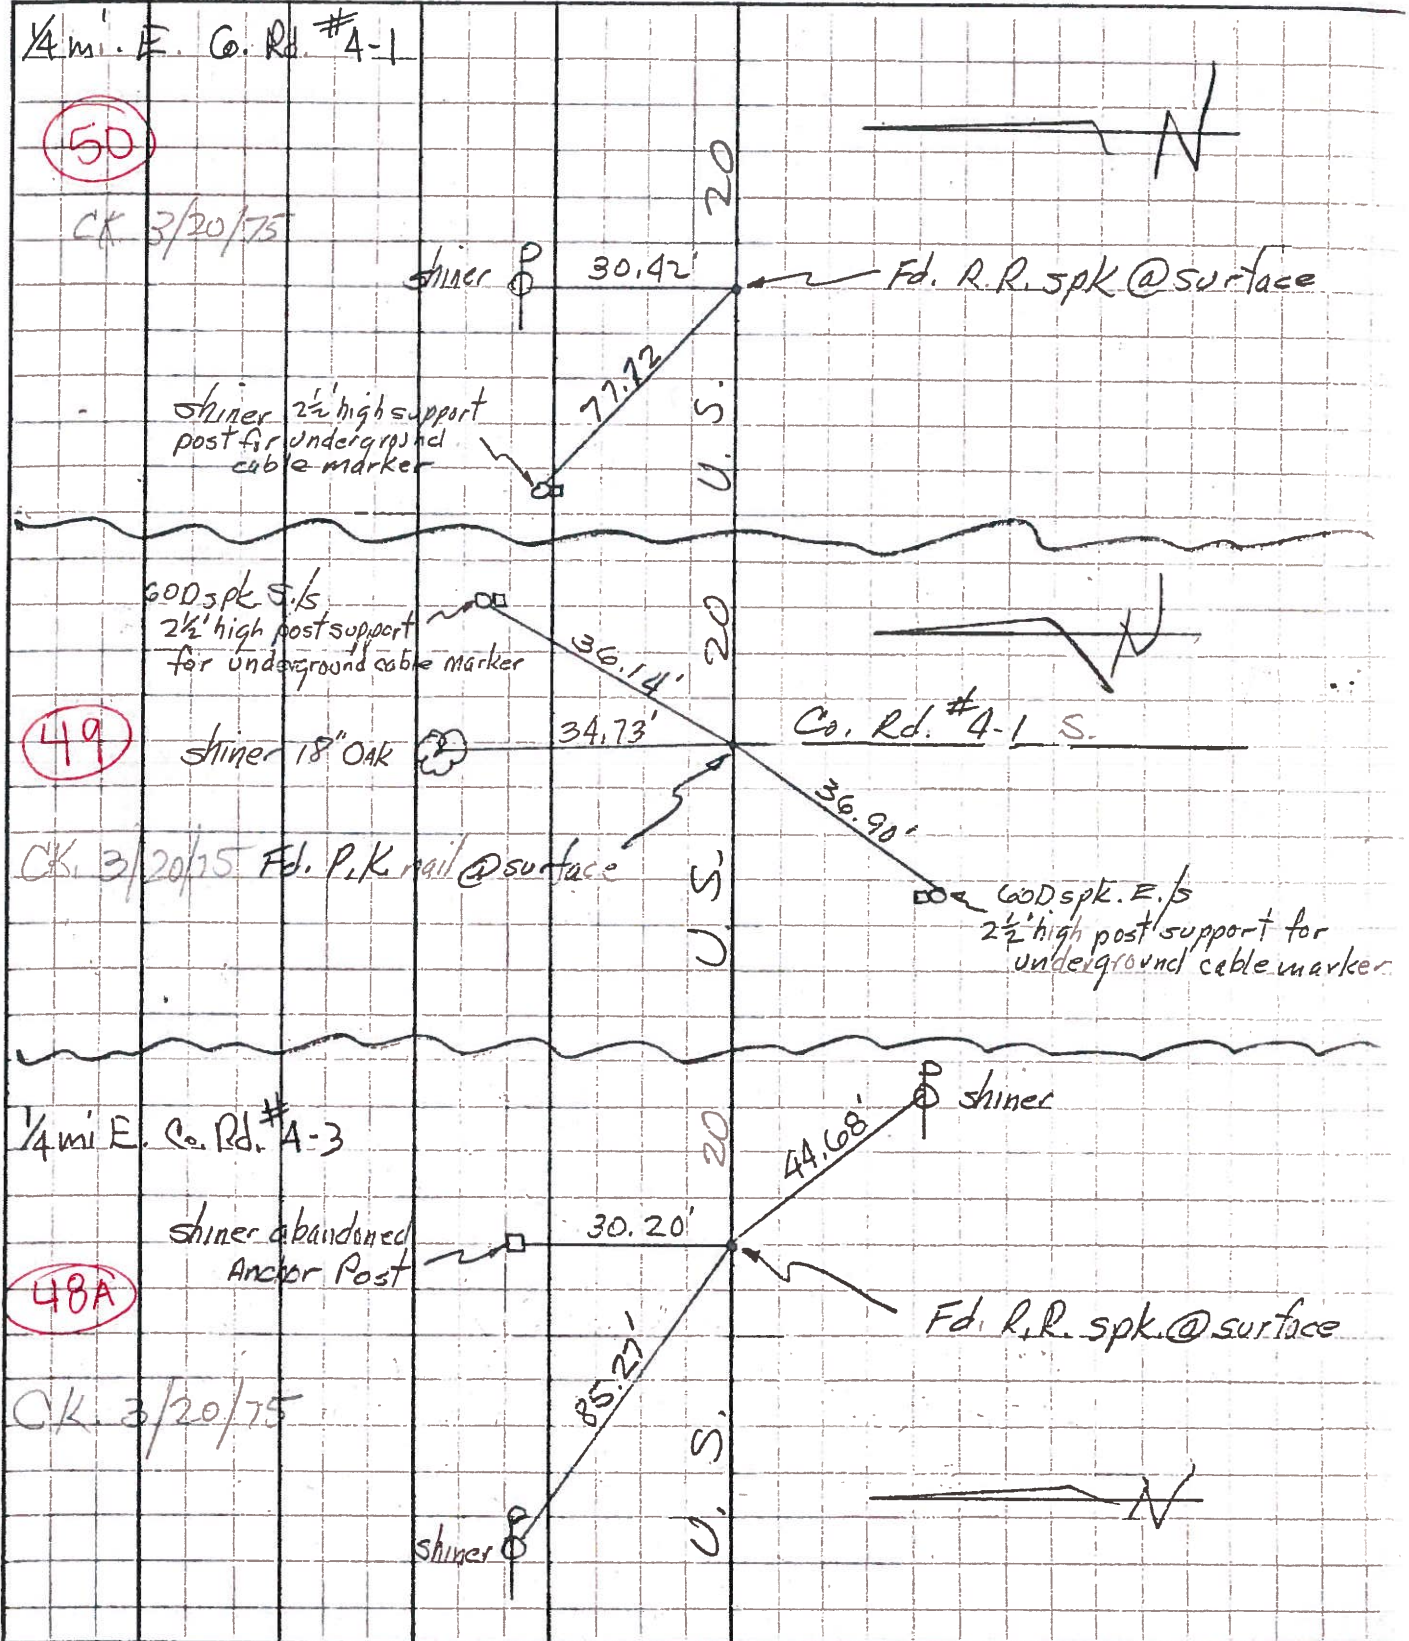 1/4 mi. E. Co. Rd. #4-1
50
CK 3/20/75
shiner
30.42'
Fd. R.R. spk @ surface
77.72
shiner 2½' high support
post for underground
cable marker
U. S. 20
60D spk S./s
2½' high post support
for underground cable marker
36.14'
49
shiner 18" OAK
34.73'
Co. Rd. #4-1 S.
36.90'
CK. 3/20/75
Fd. P.K. nail @ surface
60D spk. E./s
2½' high post support for
underground cable marker
U. S. 20
N
1/4 mi E. Co. Rd. #4-3
shiner
44.68'
shiner abandoned
Anchor Post
30.20'
48A
Fd. R.R. spk. @ surface
85.27'
CK. 3/20/75
shiner
U. S. 20
N
N